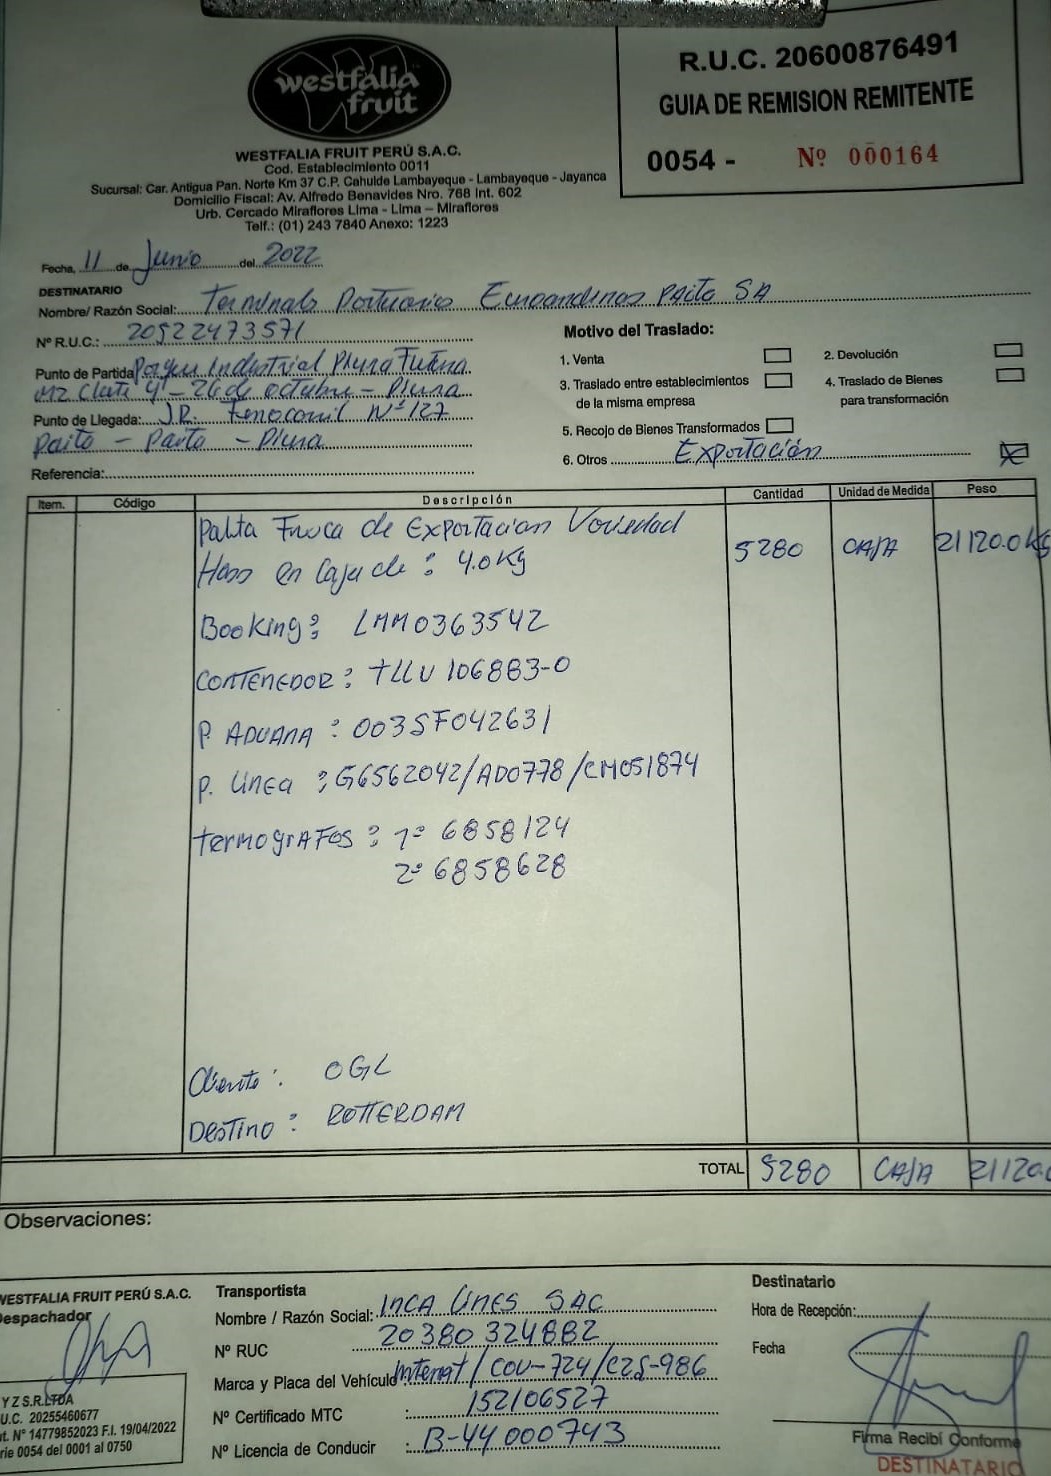 westfalia
fruit
R.U.C. 20600876491
GUIA DE REMISION REMITENTE
0054 - Nº 000164
WESTFALIA FRUIT PERÚ S.A.C.
Cod. Establecimiento 0011
Sucursal: Car. Antigua Pan. Norte Km 37 C.P. Cahuide Lambayeque - Lambayeque - Jayanca
Domicilio Fiscal: Av. Alfredo Benavides Nro. 768 Int. 602
Urb. Cercado Miraflores Lima - Lima – Miraflores
Telf.: (01) 243 7840 Anexo: 1223
Fecha, 11 de Junio del 2022
DESTINATARIO
Nombre/ Razón Social: Terminals Portuarios Euroandinos Paita SA
Nº R.U.C.: 20522473571
Punto de Partida Parque Industrial Piura Futura
Mz Lote 4 - 26 de octubre - Piura
Punto de Llegada: J.R. Ferrocarril Nº 127
Paita - Paita - Piura
Referencia:
Motivo del Traslado:
1. Venta
2. Devolución
3. Traslado entre establecimientos
de la misma empresa
4. Traslado de Bienes
para transformación
5. Recojo de Bienes Transformados
6. Otros Exportación X
Item. Código Descripción Cantidad Unidad de Medida Peso
Palta Fresca de Exportacion Variedad
Hass en Caja de : 4.0 Kg 5280 CAJA 21120.0 KG
Booking: LMM0363542
CONTENEDOR : TLLU 106883-0
P. ADUANA : 003SF042631
P. Linea : G6562042/AD0778/CM051874
termografos : 1º 6858124
2º 6858628
Cliente : OGL
Destino : ROTTERDAM
TOTAL 5280 CAJA 21120.0
Observaciones:
WESTFALIA FRUIT PERÚ S.A.C.
Despachador
Y Z S.R.LTDA
U.C. 20255460677
t. N° 14779852023 F.I. 19/04/2022
rie 0054 del 0001 al 0750
Transportista
Nombre / Razón Social: INCA LINES SAC
Nº RUC 20380324882
Marca y Placa del Vehículo: Internat / COU-724/CZS-986
Nº Certificado MTC : 152106527
Nº Licencia de Conducir : B-44000743
Destinatario
Hora de Recepción:
Fecha
Firma Recibí Conforme
DESTINATARIO